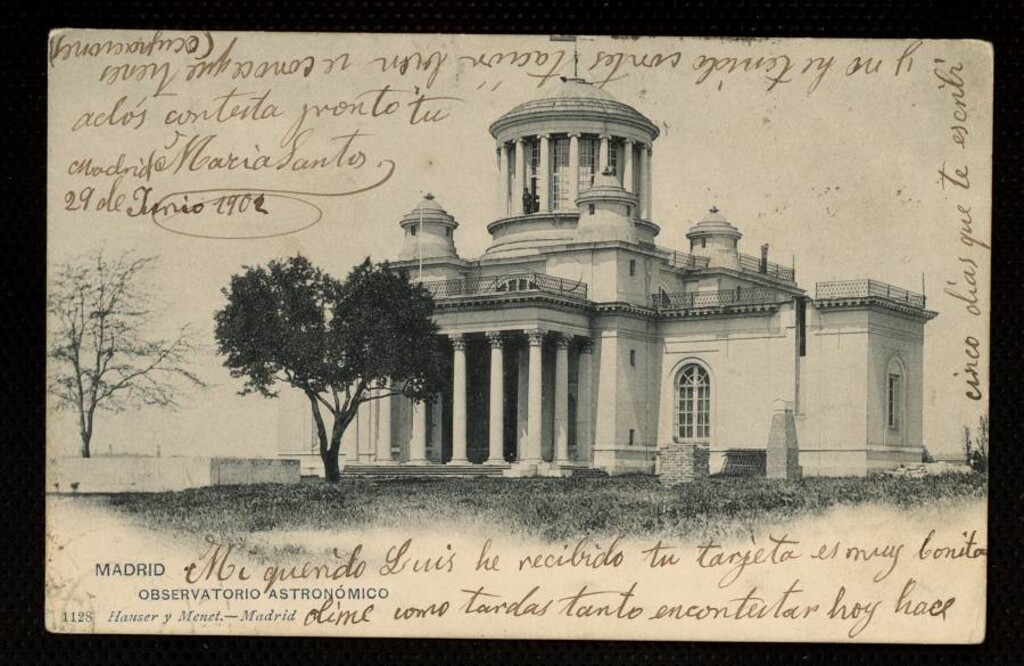 Mi querido Luis he recibido tu tarjeta es muy bonita
dime como tardas tanto encontestar hoy hace
cinco dias que te escribi
y no he tenido contestación bien se conoce que tienes
(ocupaciones)
adós contesta pronto tu
Maria Santos
Madrid
29 de Junio 1902
MADRID
OBSERVATORIO ASTRONÓMICO
1128 Hauser y Menet.—Madrid